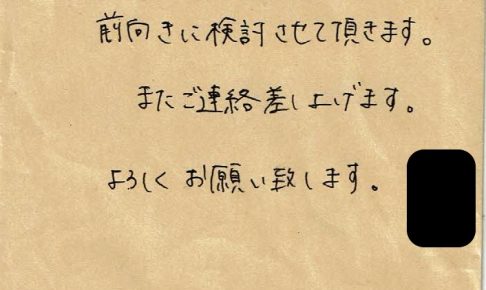 前向きに検討させて頂きます。
またご連絡差し上げます。
よろしくお願い致します。